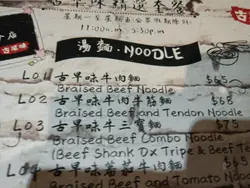 古早味精選套餐
11:00a.m. - 5:30p.m.
古早味
湯麵·NOODLE
L01 古早味牛肉麵 $68
Braised Beef Noodle
L02 古早味牛肉牛筋麵 $68
Braised Beef and Tendon Noodle
L03 古早味牛三寶麵 $75
Braised Beef Combo Noodle
(Beef Shank Ox Tripe & Beef Te
L04 古早味蕃茄牛肉麵
Braised Beef and Tomato No